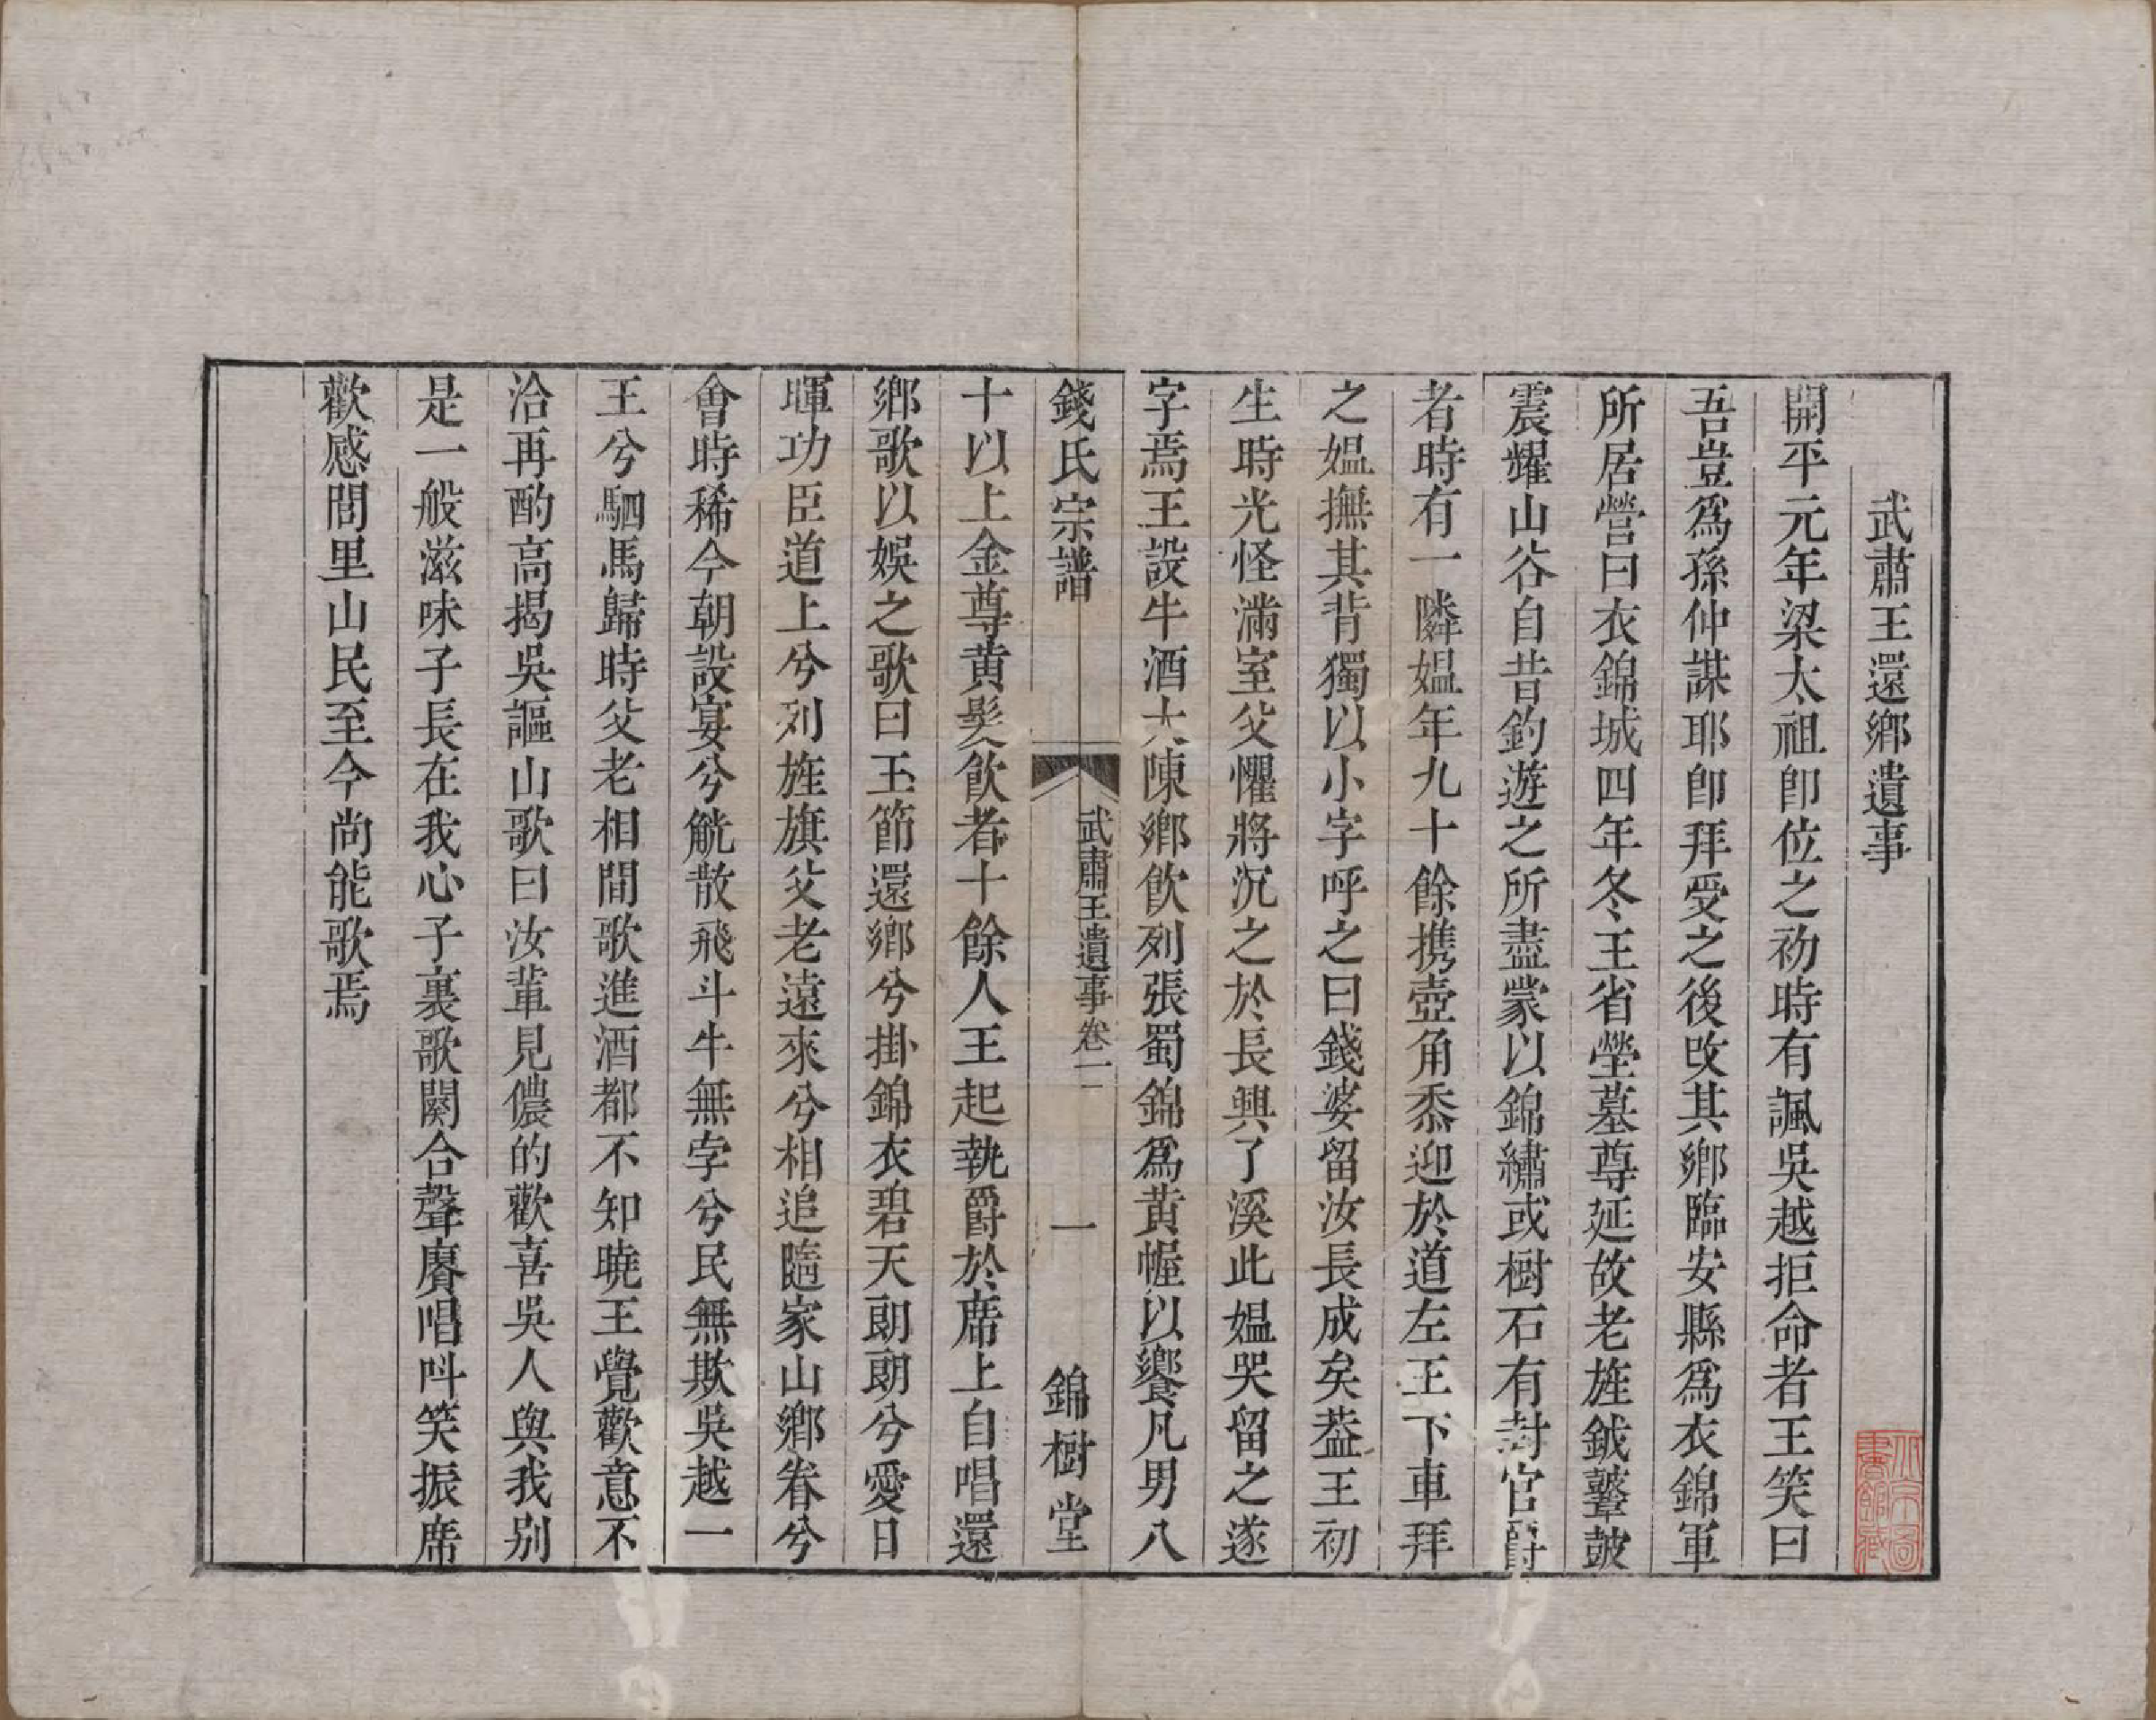 武肅王還鄉遺事
開平元年梁太祖卽位之初時有諷吳越拒命者王笑曰
吾豈爲孫仲謀耶卽拜受之後改其鄉臨安縣爲衣錦軍
所居營曰衣錦城四年冬王省塋墓尊延故老旌鉞鼙鼓
震耀山谷自昔釣遊之所盡蒙以錦繡或樹石有封官爵
者時有一隣媼年九十餘携壺角黍迎於道左王下車拜
之媼撫其背獨以小字呼之曰錢婆留汝長成矣葢王初
生時光怪滿室父懼將沉之於長興了溪此媼哭留之遂
字焉王設牛酒大陳鄉飲列張蜀錦爲黃幄以饗凡男八
錢氏宗譜
武肅王遺事卷一
一
錦樹堂
十以上金尊黃髮飲者十餘人王起執爵於席上自唱還
鄉歌以娛之歌曰玉節還鄉兮掛錦衣碧天朗朗兮愛日
暉功臣道上兮列旌旗父老遠來兮相追隨家山鄉眷兮
會時稀今朝設宴兮觥散飛斗牛無孛兮民無欺吳越一
王兮駟馬歸時父老相間歌進酒都不知曉王覺歡意不
洽再酌高揭吳謳山歌曰汝輩見儂的歡喜吳人與我別
是一般滋味子長在我心子裏歌闋合聲賡唱呌笑振席
歡感閭里山民至今尚能歌焉